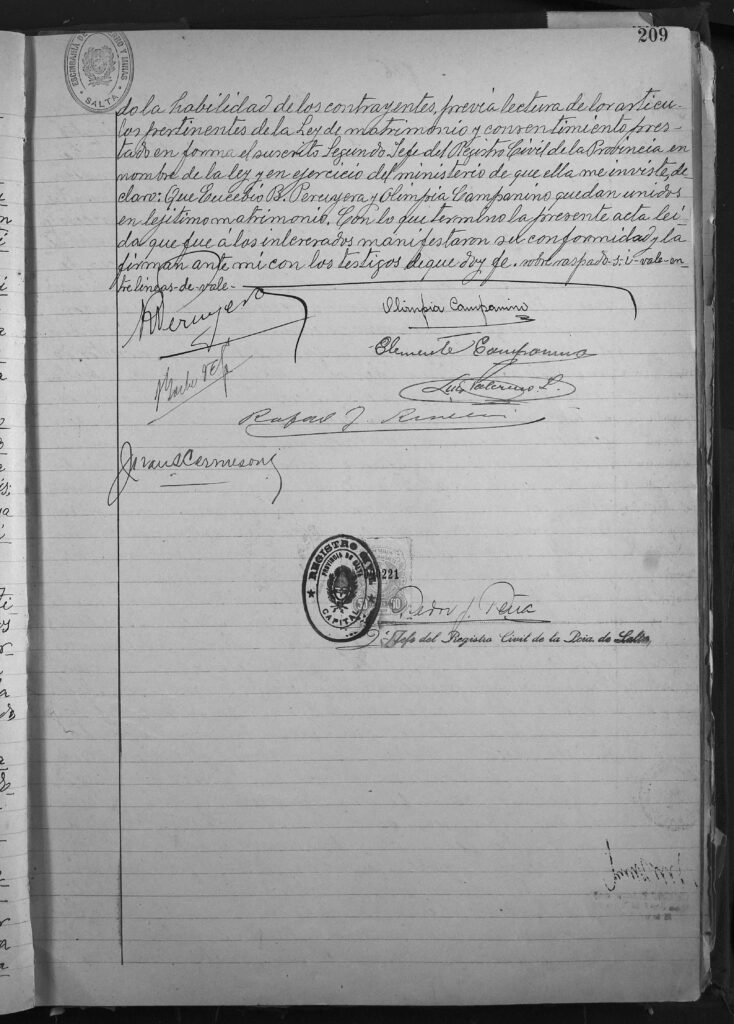 209
SALTA
do la habilidad de los contrayentes, previa lectura de los articu-
los pertinentes de la Ley de matrimonio y consentimiento pres-
tado en forma el suscrito Segundo Jefe del Registro Civil de la Provincia en
nombre de la ley y en ejercicio del ministerio de que ella me inviste, de-
claro: Que Eucebio B. Percuyera y Olimpia Campanino quedan unidos
en legitimo matrimonio. Con lo que termino la presente acta lei-
da que fue á los interesados manifestaron su conformidad y la
firman ante mi con los testigos de que doy fe. sobre raspado-s-i-vale-en-
tre lineas-de-vale-
Olimpia Campanino
Clemente Campanino
Rafael J.
REGISTRO CIVIL
PROVINCIA DE SALTA
CAPITAL
221
Pedro J. Peña
Jefe del Registro Civil de la Pcia. de Salta